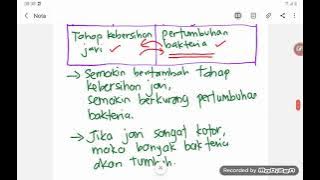 Note
Tahap kebersihan jari ✓
pertumbuhan bakteria ✓
→ Semakin bertambah tahap
kebersihan jari,
semakin berkurang pertumbuhan
bakteria.
→ Jika jari sangat kotor,
maka banyak bakteria
akan tumbuh.
Recorded by